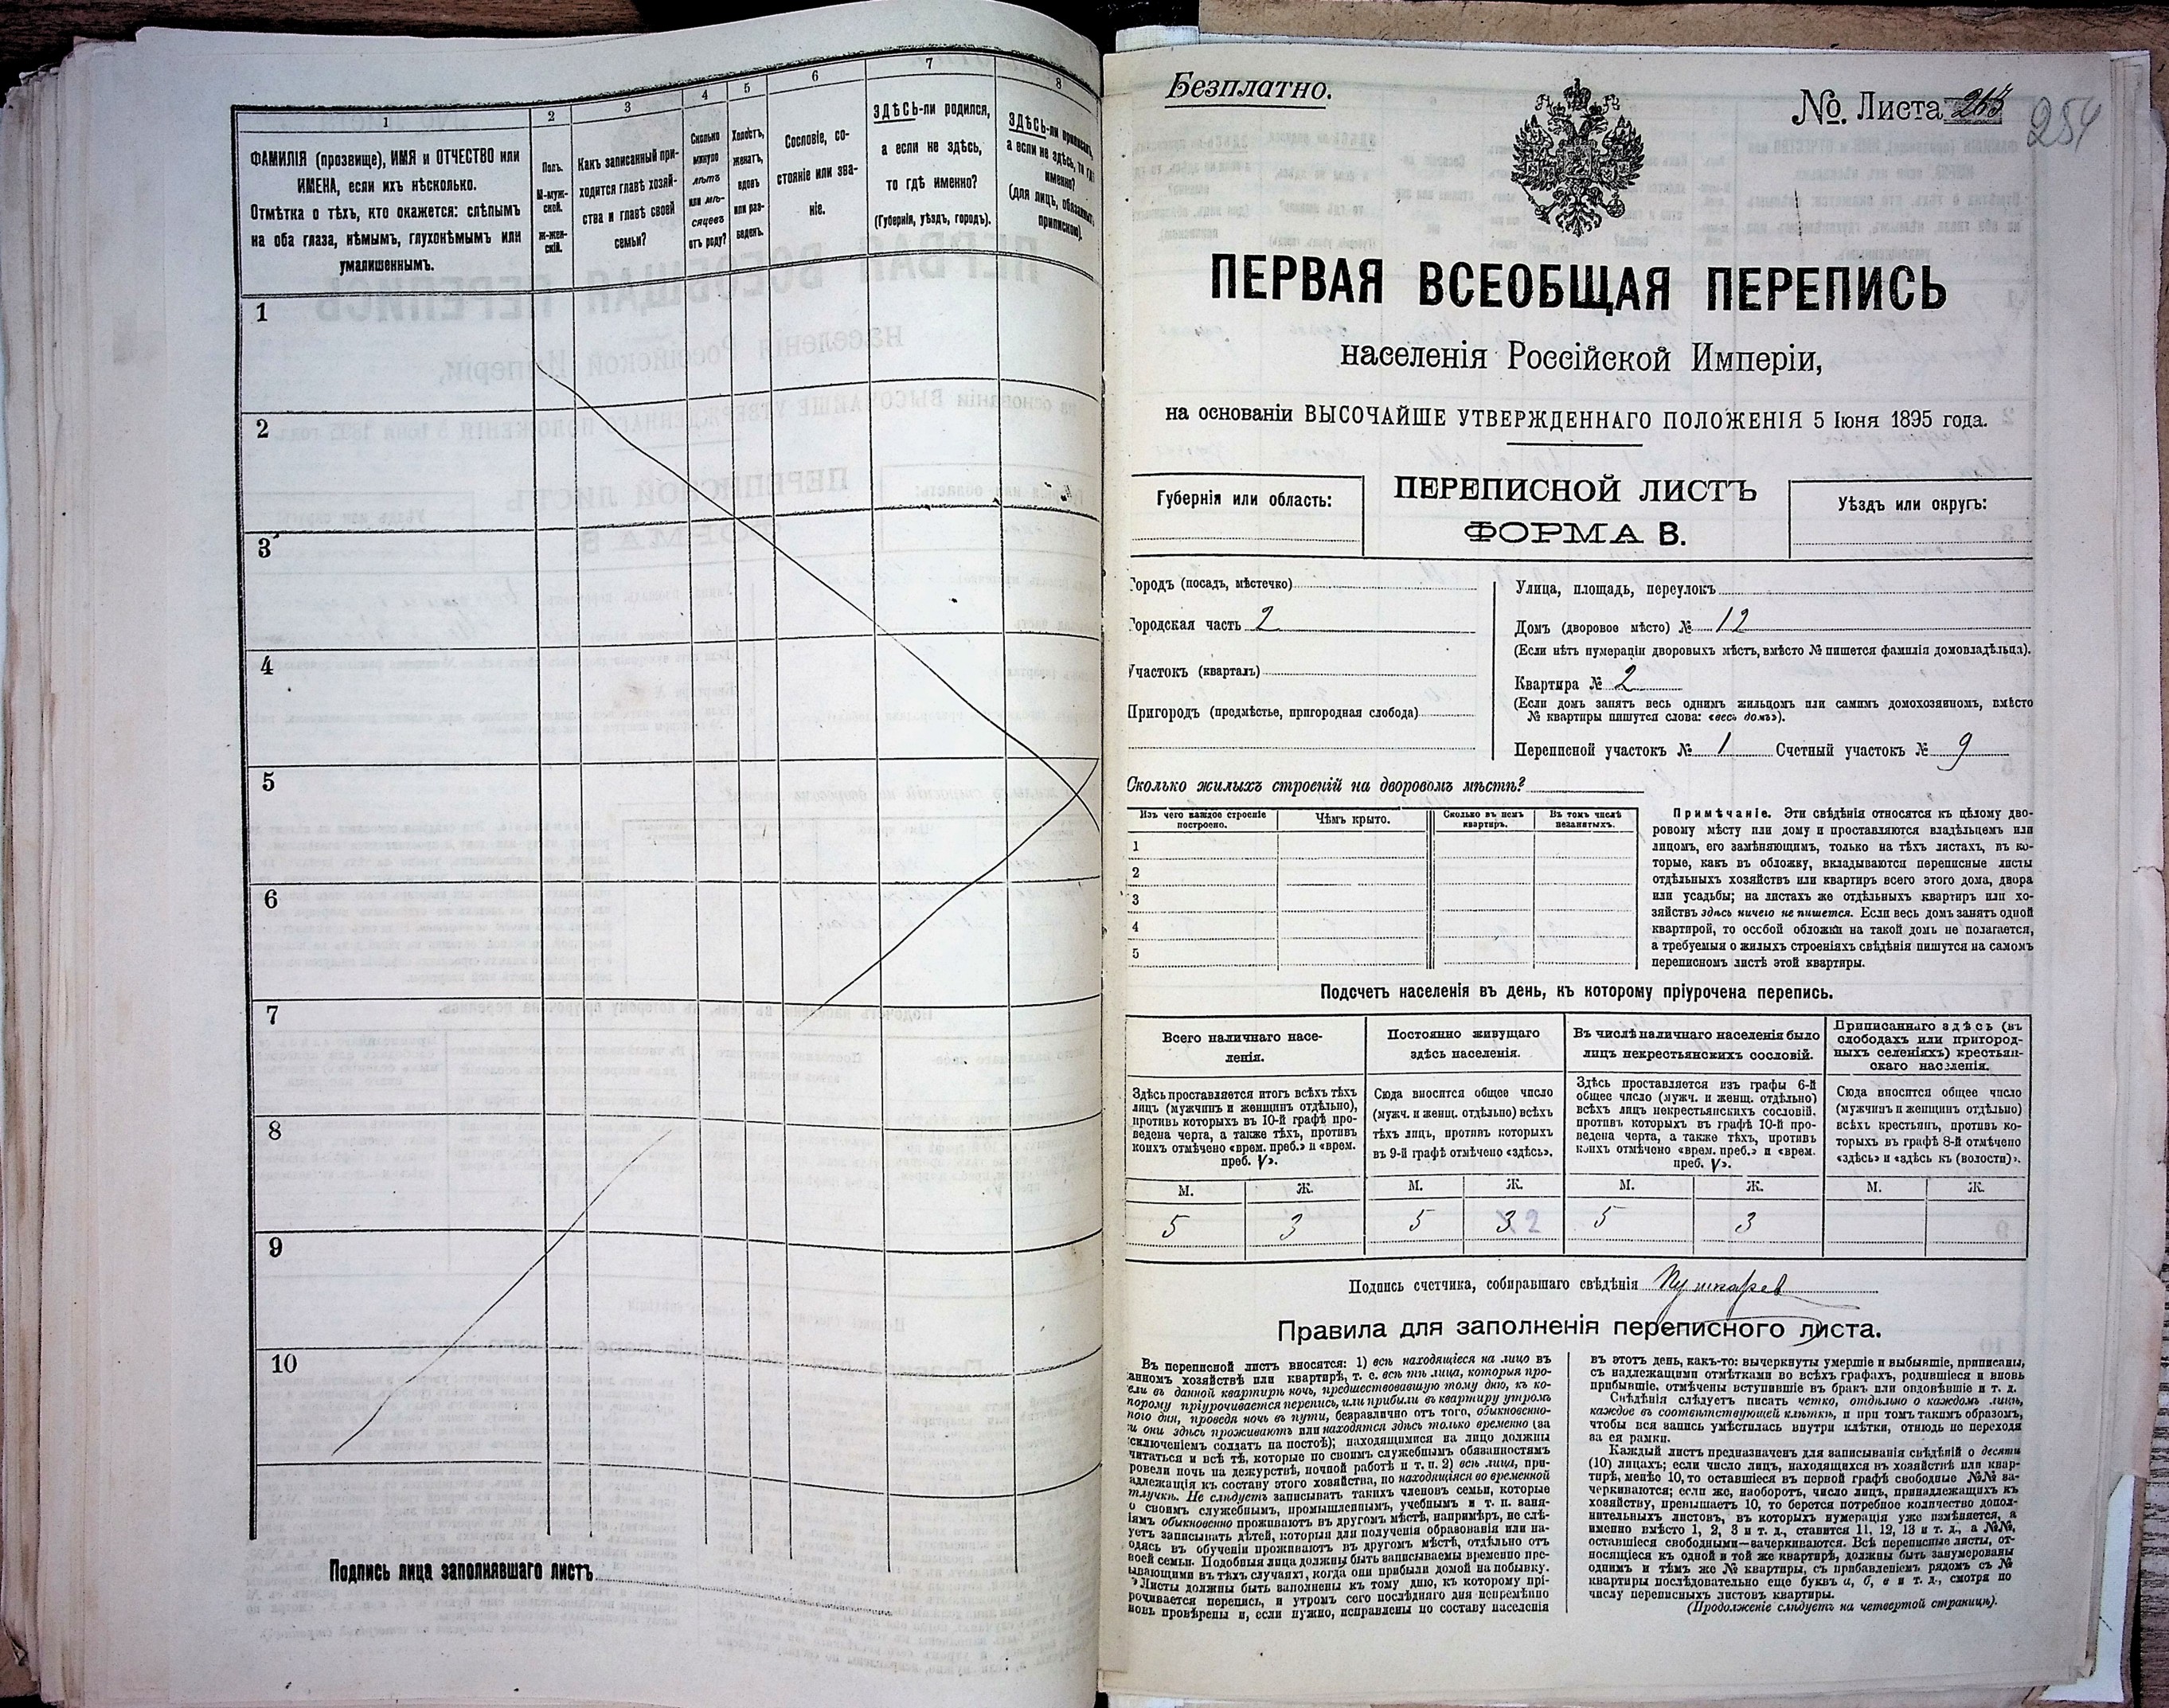 1
2
3
4
5
6
7
8
ФАМИЛІЯ (прозвище), ИМЯ и ОТЧЕСТВО или
ИМЕНА, если ихъ нѣсколько.
Отмѣтка о тѣхъ, кто окажется: слѣпымъ
на оба глаза, нѣмымъ, глухонѣмымъ или
умалишеннымъ.
Полъ.
М-муж-
ской.
ж-жен-
скій.
Какъ записанный при-
ходится главѣ хозяй-
ства и главѣ своей
семьи?
Сколько
минуло
лѣтъ
или мѣ-
сяцевъ
отъ роду?
Холостъ,
женатъ,
вдовъ
или раз-
веденъ.
Сословіе, со-
стояніе или зва-
ніе.
ЗДѢСЬ-ли родился,
а если не здѣсь,
то гдѣ именно?
(Губернія, уѣздъ, городъ).
ЗДѢСЬ-ли приписанъ,
а если не здѣсь, то гдѣ
именно?
(для лицъ, обязанныхъ
припискою).
1
2
3
4
5
6
7
8
9
10
Подпись лица заполнявшаго листъ
Безплатно.
№ Листа
254
ПЕРВАЯ ВСЕОБЩАЯ ПЕРЕПИСЬ
населенія Россійской Имперіи,
на основаніи ВЫСОЧАЙШЕ УТВЕРЖДЕННАГО ПОЛОЖЕНІЯ 5 Іюня 1895 года.
Губернія или область:
ПЕРЕПИСНОЙ ЛИСТЪ
ФОРМА В.
Уѣздъ или округъ:
Городъ (посадъ, мѣстечко)
Городская часть 2
Участокъ (кварталъ)
Пригородъ (предмѣстье, пригородная слобода)
Улица, площадь, переулокъ
Домъ (дворовое мѣсто) № 12
(Если нѣтъ нумераціи дворовыхъ мѣстъ, вмѣсто № пишется фамилія домовладѣльца).
Квартира № 2
(Если домъ занятъ весь однимъ жильцомъ или самимъ домохозяиномъ, вмѣсто
№ квартиры пишутся слова: «весь домъ»).
Переписной участокъ № 1 Счетный участокъ № 9
Сколько жилыхъ строеній на дворовомъ мѣстѣ?
Изъ чего каждое строеніе
построено.
Чѣмъ крыто.
Сколько въ немъ
квартиръ.
Въ томъ числѣ
незанятыхъ.
1
2
3
4
5
Примѣчаніе. Эти свѣдѣнія относятся къ цѣлому дво-
ровому мѣсту или дому и проставляются владѣльцемъ или
лицомъ, его замѣняющимъ, только на тѣхъ листахъ, въ ко-
торые, какъ въ обложку, вкладываются переписные листы
отдѣльныхъ хозяйствъ или квартиръ всего этого дома, двора
или усадьбы; на листахъ же отдѣльныхъ квартиръ или хо-
зяйствъ здѣсь ничего не пишется. Если весь домъ занятъ одной
квартирой, то особой обложки на такой домъ не полагается,
а требуемыя о жилыхъ строеніяхъ свѣдѣнія пишутся на самомъ
переписномъ листѣ этой квартиры.
Подсчетъ населенія въ день, къ которому пріурочена перепись.
Всего наличнаго насе-
ленія.
Постоянно живущаго
здѣсь населенія.
Въ числѣ наличнаго населенія было
лицъ некрестьянскихъ сословій.
Приписаннаго здѣсь (въ
слободахъ или пригород-
ныхъ селеніяхъ) крестьян-
скаго населенія.
Здѣсь проставляется итогъ всѣхъ тѣхъ
лицъ (мужчинъ и женщинъ отдѣльно),
противъ которыхъ въ 10-й графѣ про-
ведена черта, а также тѣхъ, противъ
коихъ отмѣчено «врем. преб.» и «врем.
преб. V».
Сюда вносится общее число
(мужч. и женщ. отдѣльно) всѣхъ
тѣхъ лицъ, противъ которыхъ
въ 9-й графѣ отмѣчено «здѣсь».
Здѣсь проставляется изъ графы 6-й
общее число (мужч. и женщ. отдѣльно)
всѣхъ лицъ некрестьянскихъ сословій.
противъ которыхъ въ графѣ 10-й про-
ведена черта, а также тѣхъ, противъ
коихъ отмѣчено «врем. преб.» и «врем.
преб. V».
Сюда вносится общее число
(мужчинъ и женщинъ отдѣльно)
всѣхъ крестьянъ, противъ ко-
торыхъ въ графѣ 8-й отмѣчено
«здѣсь» и «здѣсь къ (волости)».
М. Ж. М. Ж. М. Ж. М. Ж.
5 3 5 3 2 5 3
Подпись счетчика, собиравшаго свѣдѣнія Пушкарев
Правила для заполненія переписного листа.
Въ переписной листъ вносятся: 1) всѣ находящіеся на лицо въ
анномъ хозяйствѣ или квартирѣ, т. е. всѣ тѣ лица, которыя про-
ели въ данной квартирѣ ночь, предшествовавшую тому дню, къ ко-
порому пріурочивается перепись, или прибыли въ квартиру утромъ
того дня, проведя ночь въ пути, безразлично отъ того, обыкновенно-
и они здѣсь проживаютъ или находятся здѣсь только временно (за
сключеніемъ солдатъ на постоѣ); находящимися на лицо должны
читаться и всѣ тѣ, которые по своимъ служебнымъ обязанностямъ
ровели ночь на дежурствѣ, ночной работѣ и т. п. 2) всѣ лица, при-
адлежащія къ составу этого хозяйства, но находящіяся во временной
тлучкѣ. Не слѣдуетъ записывать такихъ членовъ семьи, которые
о своимъ служебнымъ, промышленнымъ, учебнымъ и т. п. заня-
іямъ обыкновенно проживаютъ въ другомъ мѣстѣ, напримѣръ, не слѣ-
уетъ записывать дѣтей, которыя для полученія образованія или на-
одясь въ обученіи проживаютъ въ другомъ мѣстѣ, отдѣльно отъ
воей семьи. Подобныя лица должны быть записываемы временно пре-
ывающими въ тѣхъ случаяхъ, когда они прибыли домой на побывку.
Листы должны быть заполнены къ тому дню, къ которому прі-
рочивается перепись, и утромъ сего послѣдняго дня непремѣнно
новь провѣрены и, если нужно, исправлены по составу населенія
въ этотъ день, какъ-то: вычеркнуты умершіе и выбывшіе, приписаны,
съ надлежащими отмѣтками во всѣхъ графахъ, родившіеся и вновь
прибывшіе, отмѣчены вступившіе въ бракъ или овдовѣвшіе и т. д.
Свѣдѣнія слѣдуетъ писать четко, отдѣльно о каждомъ лицѣ,
каждое въ соотвѣтствующей клѣткѣ, и при томъ такимъ образомъ,
чтобы вся запись умѣстилась внутри клѣтки, отнюдь не переходя
за ея рамки.
Каждый листъ предназначенъ для записыванія свѣдѣній о десяти
(10) лицахъ; если число лицъ, находящихся въ хозяйствѣ или квар-
тирѣ, менѣе 10, то оставшіеся въ первой графѣ свободные №№ за-
черкиваются; если же, наоборотъ, число лицъ, принадлежащихъ къ
хозяйству, превышаетъ 10, то берется потребное количество допол-
нительныхъ листовъ, въ которыхъ нумерація уже измѣняется, а
именно вмѣсто 1, 2, 3 и т. д., ставится 11, 12, 13 и т. д., а №№,
оставшіеся свободными—зачеркиваются. Всѣ переписные листы, от-
носящіеся къ одной и той же квартирѣ, должны быть занумерованы
однимъ и тѣмъ же № квартиры, съ прибавленіемъ рядомъ съ №
квартиры послѣдовательно еще буквъ а, б, в и т. д., смотря по
числу переписныхъ листовъ квартиры.
(Продолженіе слѣдуетъ на четвертой страницѣ).